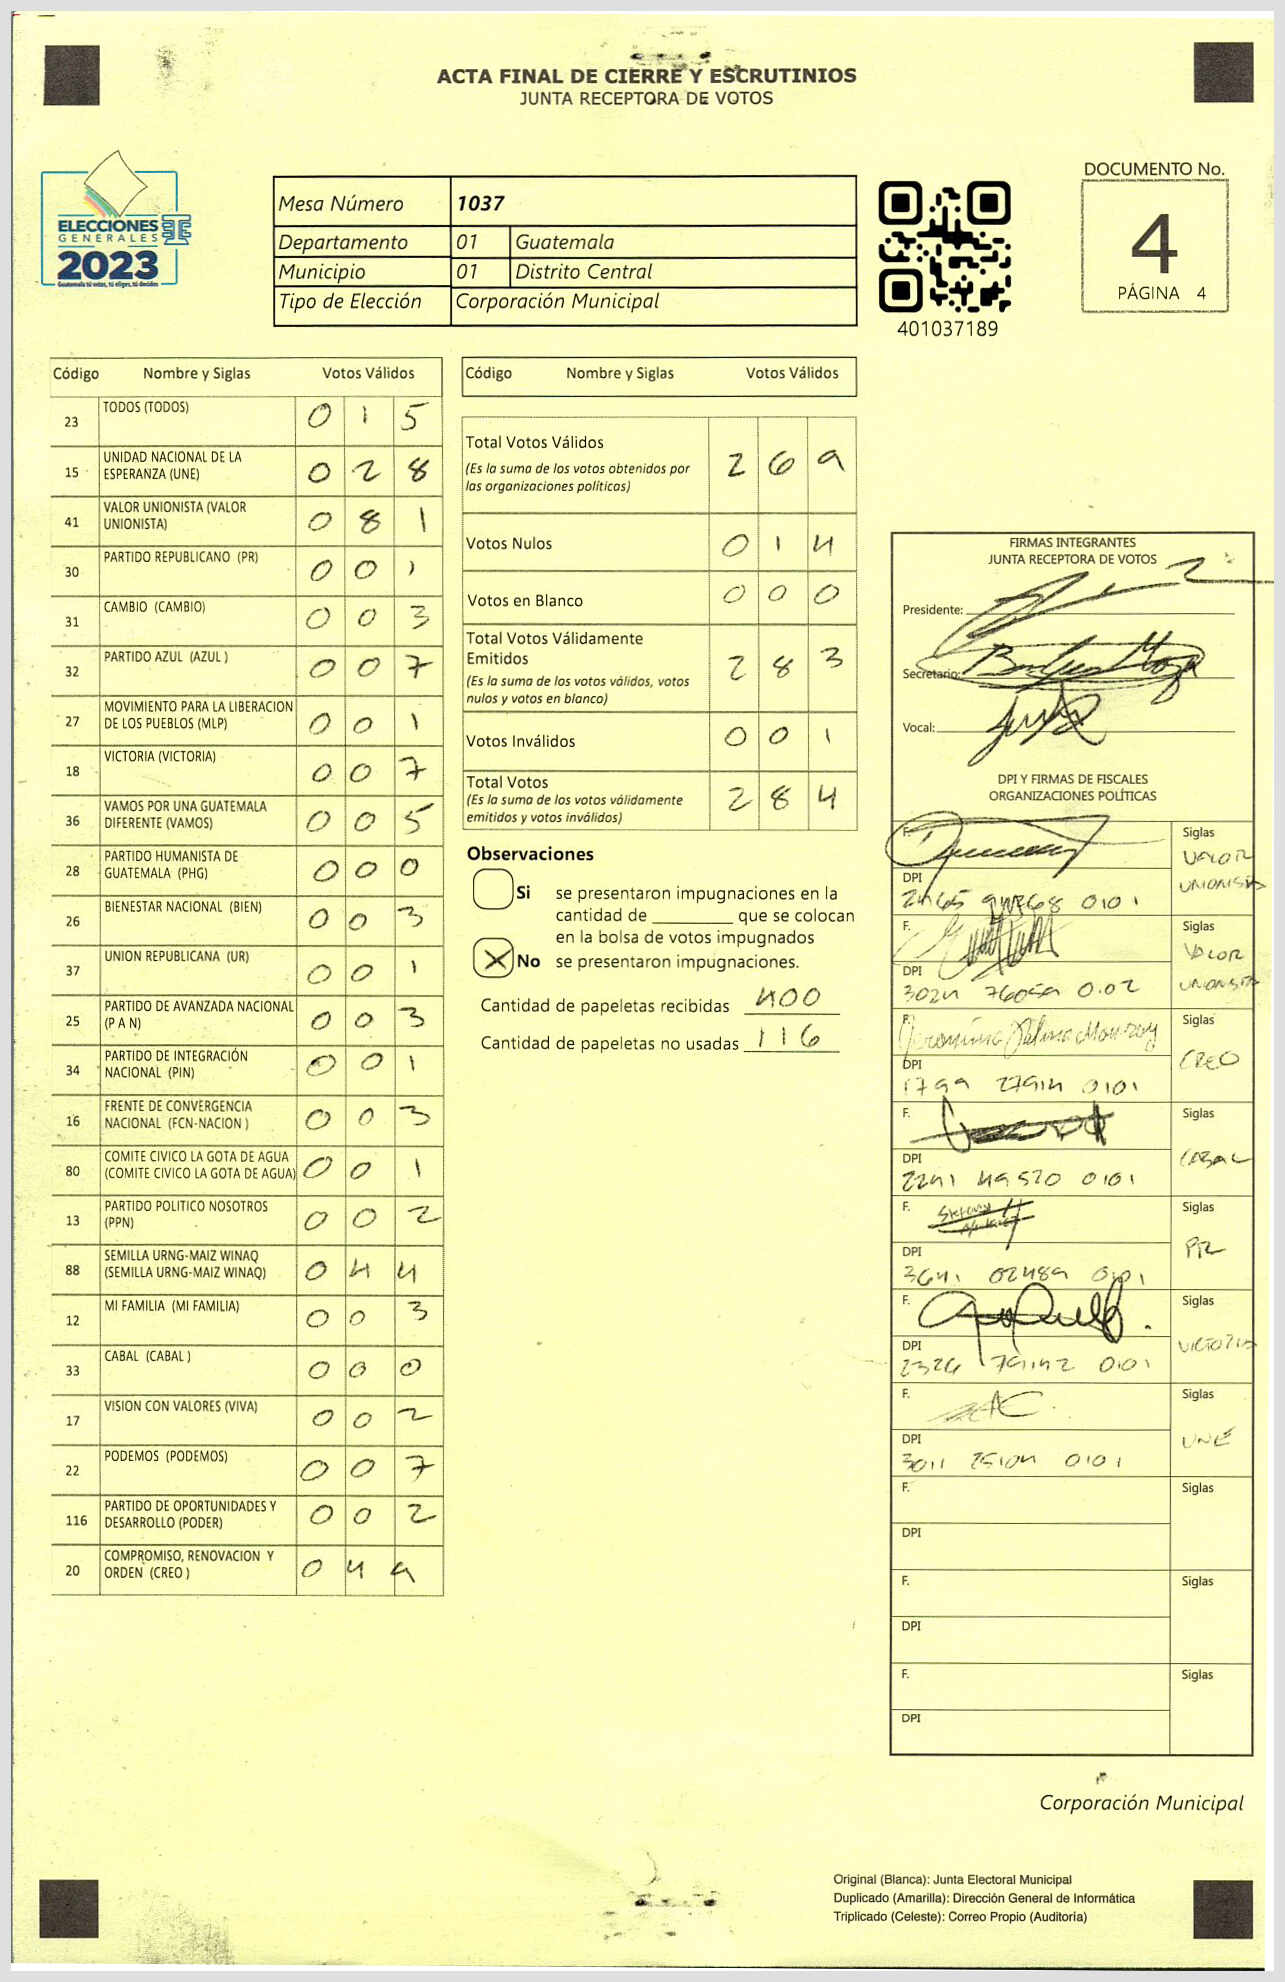 ACTA FINAL DE CIERRE Y ESCRUTINIOS
JUNTA RECEPTORA DE VOTOS
ELECCIONES
GENERALES
2023
Guatemala tú votas, tú eliges, tú decides
Mesa Número 1037
Departamento 01 Guatemala
Municipio 01 Distrito Central
Tipo de Elección Corporación Municipal
401037189
DOCUMENTO No.
4
PÁGINA 4
Código Nombre y Siglas Votos Válidos
23 TODOS (TODOS) 0 1 5
15 UNIDAD NACIONAL DE LA
ESPERANZA (UNE) 0 2 8
41 VALOR UNIONISTA (VALOR
UNIONISTA) 0 8 1
30 PARTIDO REPUBLICANO (PR) 0 0 1
31 CAMBIO (CAMBIO) 0 0 3
32 PARTIDO AZUL (AZUL ) 0 0 7
27 MOVIMIENTO PARA LA LIBERACION
DE LOS PUEBLOS (MLP) 0 0 1
18 VICTORIA (VICTORIA) 0 0 7
36 VAMOS POR UNA GUATEMALA
DIFERENTE (VAMOS) 0 0 5
28 PARTIDO HUMANISTA DE
GUATEMALA (PHG) 0 0 0
26 BIENESTAR NACIONAL (BIEN) 0 0 3
37 UNION REPUBLICANA (UR) 0 0 1
25 PARTIDO DE AVANZADA NACIONAL
(P A N) 0 0 3
34 PARTIDO DE INTEGRACIÓN
NACIONAL (PIN) 0 0 1
16 FRENTE DE CONVERGENCIA
NACIONAL (FCN-NACION ) 0 0 3
80 COMITE CIVICO LA GOTA DE AGUA
(COMITE CIVICO LA GOTA DE AGUA) 0 0 1
13 PARTIDO POLITICO NOSOTROS
(PPN) 0 0 2
88 SEMILLA URNG-MAIZ WINAQ
(SEMILLA URNG-MAIZ WINAQ) 0 4 4
12 MI FAMILIA (MI FAMILIA) 0 0 3
33 CABAL (CABAL ) 0 0 0
17 VISION CON VALORES (VIVA) 0 0 2
22 PODEMOS (PODEMOS) 0 0 7
116 PARTIDO DE OPORTUNIDADES Y
DESARROLLO (PODER) 0 0 2
20 COMPROMISO, RENOVACION Y
ORDEN (CREO ) 0 4 9
Código Nombre y Siglas Votos Válidos
Total Votos Válidos 2 6 9
(Es la suma de los votos obtenidos por
las organizaciones políticas)
Votos Nulos 0 1 4
Votos en Blanco 0 0 0
Total Votos Válidamente
Emitidos 2 8 3
(Es la suma de los votos válidos, votos
nulos y votos en blanco)
Votos Inválidos 0 0 1
Total Votos 2 8 4
(Es la suma de los votos válidamente
emitidos y votos inválidos)
Observaciones
Si se presentaron impugnaciones en la
cantidad de ________ que se colocan
en la bolsa de votos impugnados
X No se presentaron impugnaciones.
Cantidad de papeletas recibidas 400
Cantidad de papeletas no usadas 116
FIRMAS INTEGRANTES
JUNTA RECEPTORA DE VOTOS
Presidente:
Secretario:
Vocal:
DPI Y FIRMAS DE FISCALES
ORGANIZACIONES POLÍTICAS
F. Siglas
VALOR
UNIONISTA
DPI
0101
F. Siglas
VALOR
UNIONISTA
DPI
3024 76059 0.02
F. Siglas
CREO
DPI
1799 27914 0101
F. Siglas
CABAL
DPI
2241 49520 0101
F. Siglas
PR
DPI
3641 02489 0101
F. Siglas
VICTORIA
DPI
2326 79142 0101
F. Siglas
UNE
DPI
3011 25104 0101
F. Siglas
DPI
F. Siglas
DPI
F. Siglas
DPI
Corporación Municipal
Original (Blanca): Junta Electoral Municipal
Duplicado (Amarilla): Dirección General de Informática
Triplicado (Celeste): Correo Propio (Auditoría)